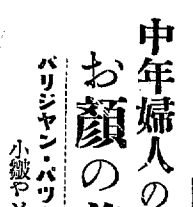 中年婦人の
お顔の
パリジヤン・パツ
小皺や